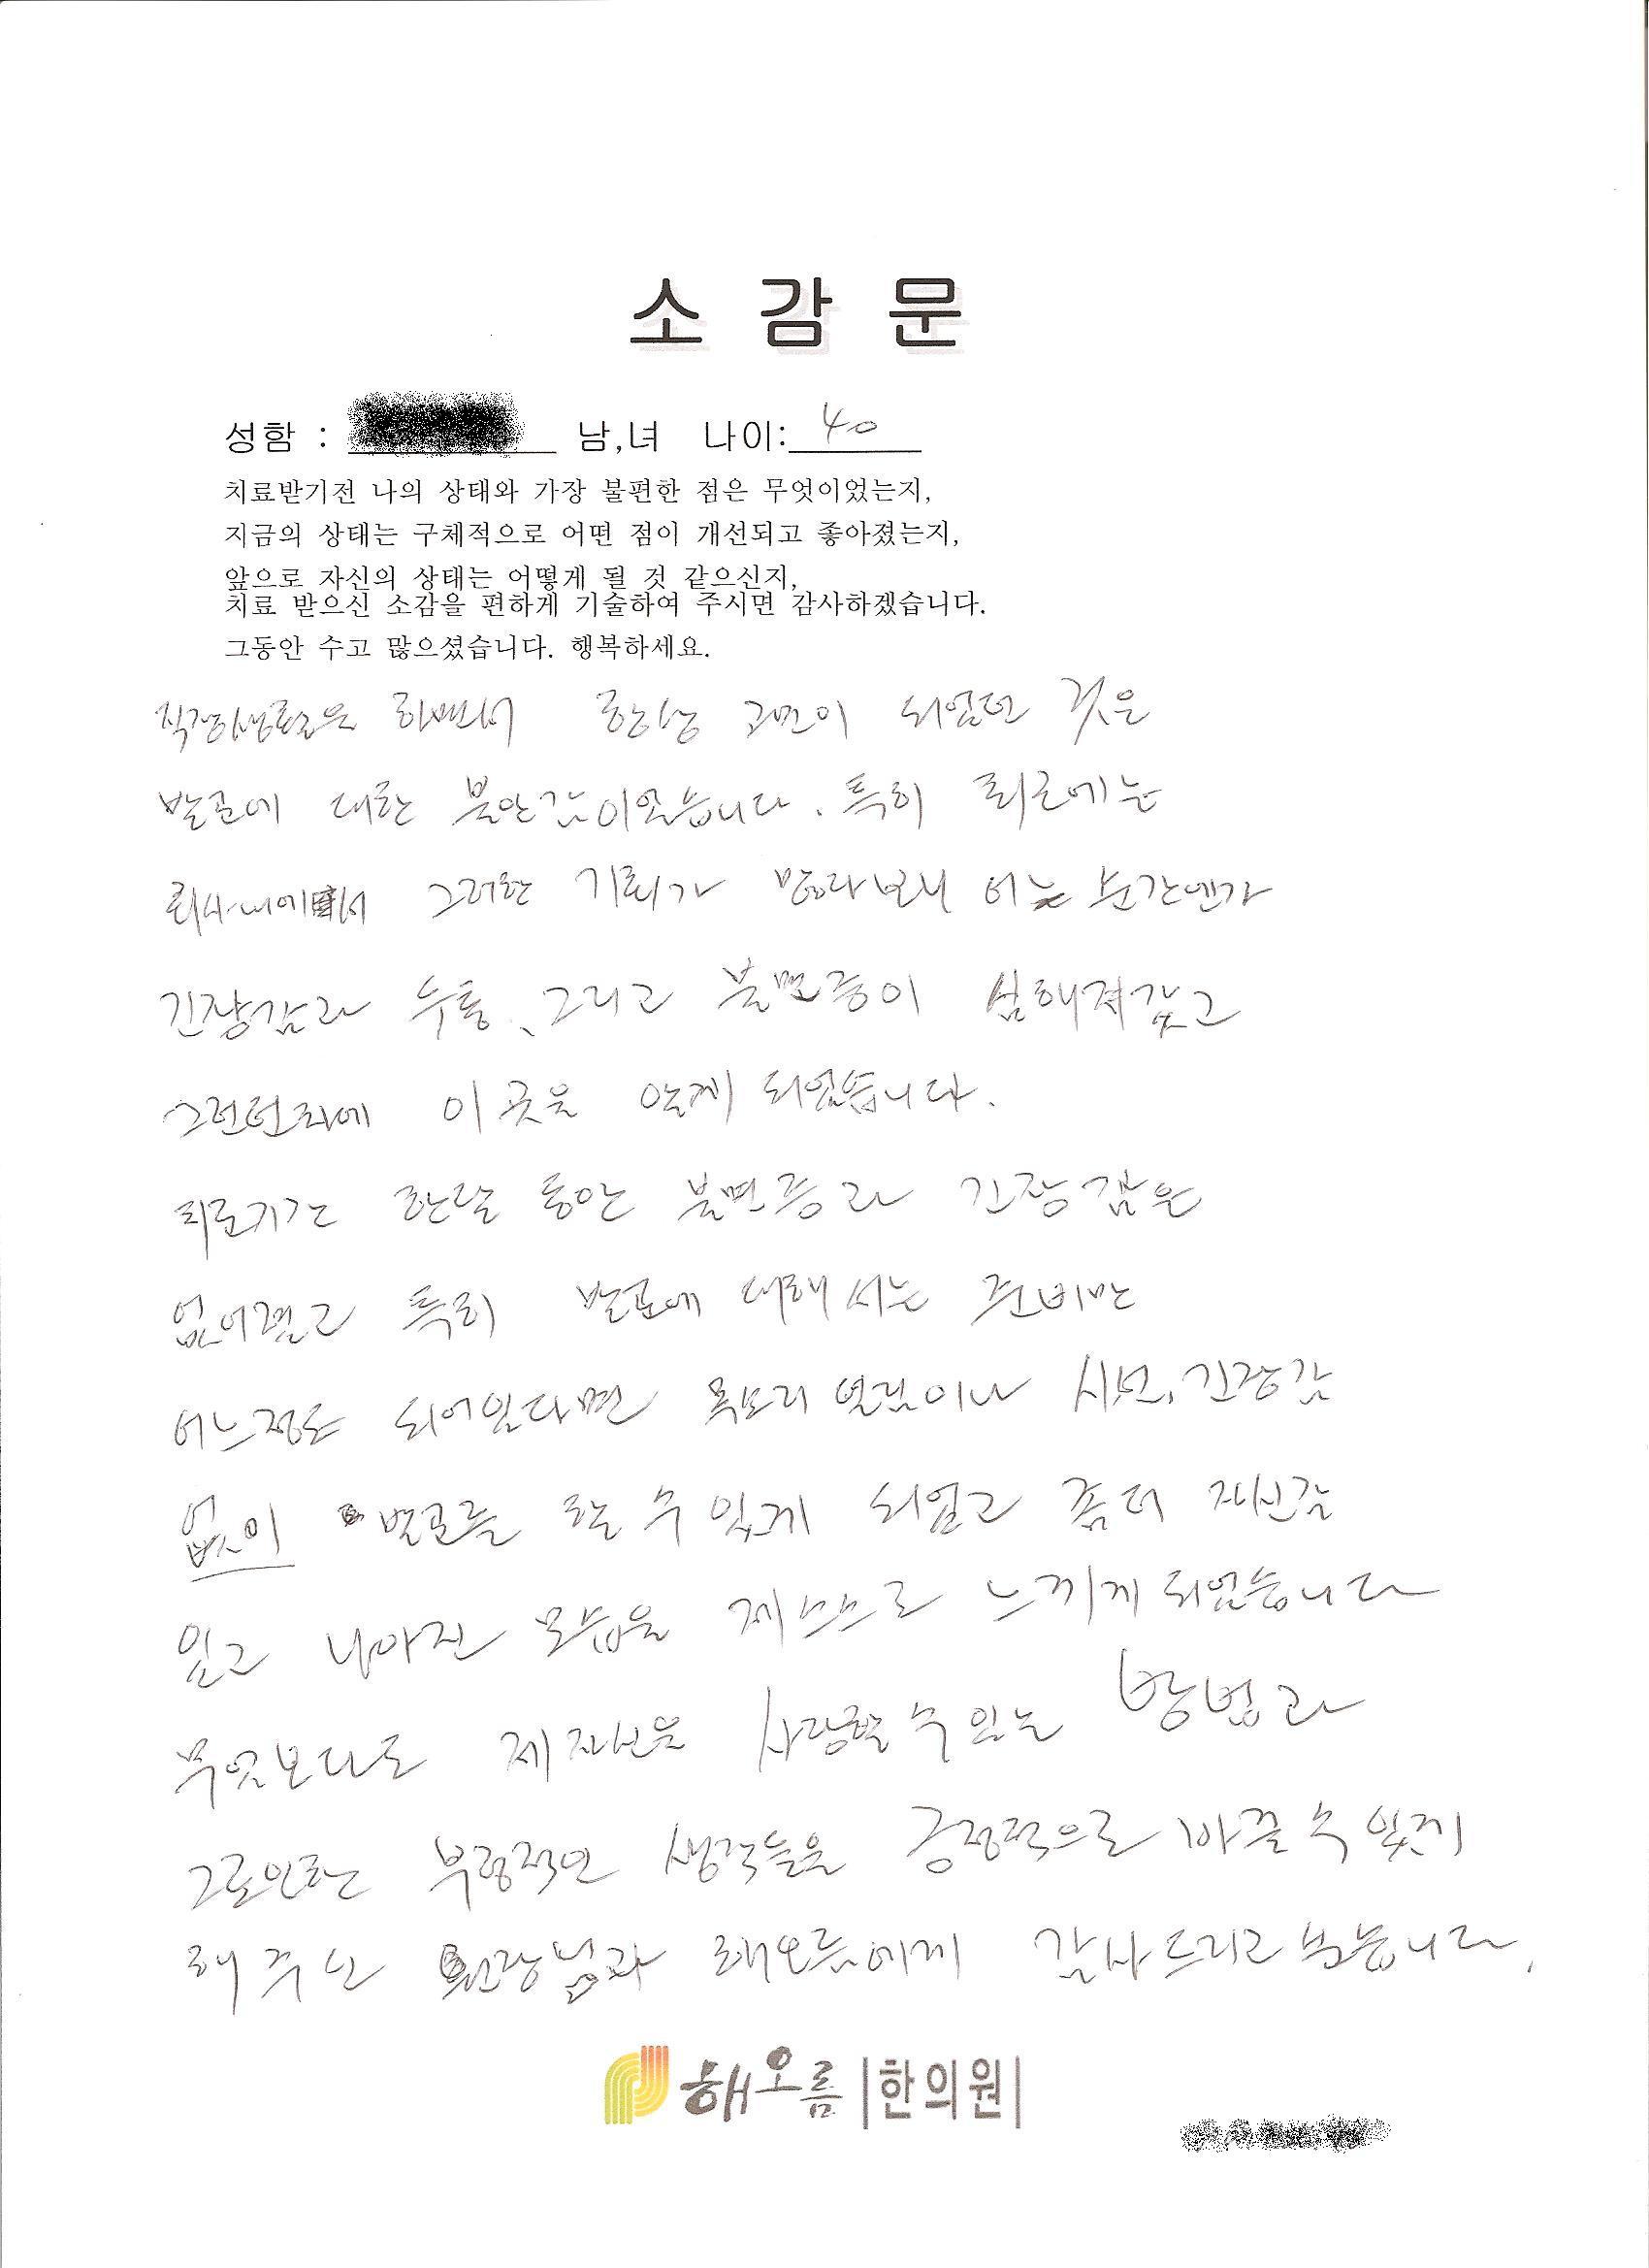 소 감 문
성함 : 남,녀 나이: 40
치료받기전 나의 상태와 가장 불편한 점은 무엇이었는지,
지금의 상태는 구체적으로 어떤 점이 개선되고 좋아졌는지,
앞으로 자신의 상태는 어떻게 될 것 같으신지,
치료 받으신 소감을 편하게 기술하여 주시면 감사하겠습니다.
그동안 수고 많으셨습니다. 행복하세요.
직장생활을 하면서 항상 고민이 되었던 것은
발표에 대한 불안감이었습니다. 특히 최근에는
회사내에서 그러한 기회가 많다보니 어느 순간엔가
긴장감과 두통, 그리고 불면증이 심해져갔고
그런던차에 이곳을 알게 되었습니다.
치료기간 한달 동안 불면증과 긴장감은
없어졌고 특히 발표에 대해서는 준비만
어느정도 되어있다면 목소리 떨림이나 시선, 긴장감
없이 발표를 할 수 있게 되었고 좀더 자신감
있고 나아진 모습을 제 스스로 느끼게 되었습니다
무엇보다도 제 자신을 사랑할 수 있는 방법과
그로인한 부정적인 생각들을 긍정적으로 바꿀 수 있게
해 주신 원장님과 해오름에게 감사드리고 싶습니다.
해오름 한의원